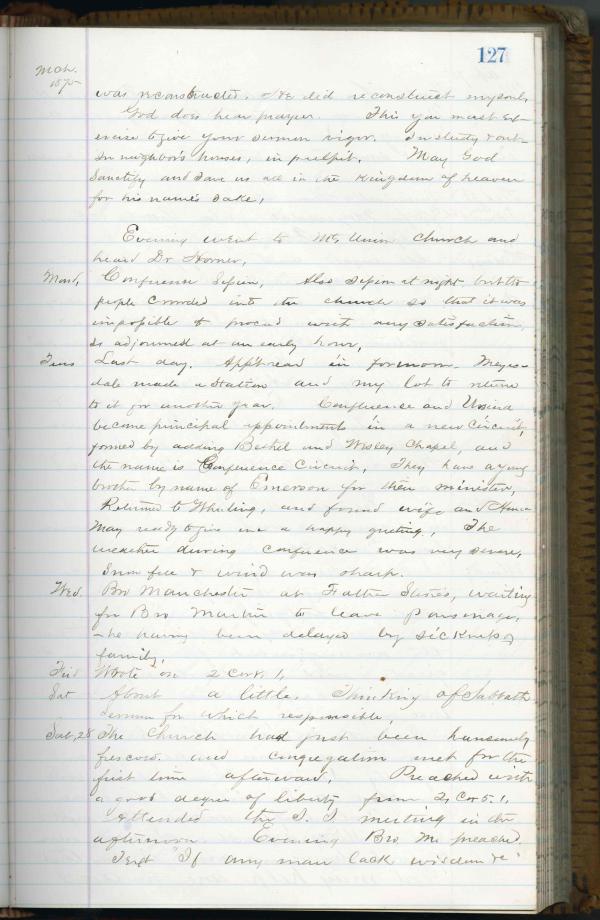 127
Mch.
1875
was reconstructed. He did reconstruct my soul.
God does hear prayer. This you must ex-
ercise to give your sermon vigor. In study & out-
In neighbor's houses, in pulpit. May God
Sanctify and save us all in the kingdom of heaven
for his name's sake,
Evening went to Mt. Union Church and
heard Dr Horner,
Mond, Conference Session, Also session at night but the
people crowded into the church so that it was
impossible to proceed with any satisfaction,
so adjourned at an early hour,
Tues Last day. Appts read in forenoon. Meyers-
dale made a station and my lot to return
to it for another year. Confluence and Ursina
become principal appointments in a new circuit,
formed by adding Bethel and Wesley Chapel, and
the name is Confluence Circuit, They have a young
brother by name of Emerson for their minister,
Returned to Wheeling, and found wife and
May ready to give me a happy greeting, The
weather during conference was very severe,
Snow fell & wind was sharp.
Wed. Bro Manchester at Father waiting
for Bro Martin to leave Parsonage,
he having been delayed by sickness of
family,
Frid Wrote on 2 Cor 5.1,
Sat About a little. Thinking of Sabbath
sermon for which responsible,
Sab, 28 The Church had just been handsomely
frescoed. and congregation met for the
first time afterward. Preached with
a good degree of liberty from 2, Cor 5.1,
Attended the meeting in the
afternoon Evening Bro Mc preached.
Text "If any man lack wisdom &c"